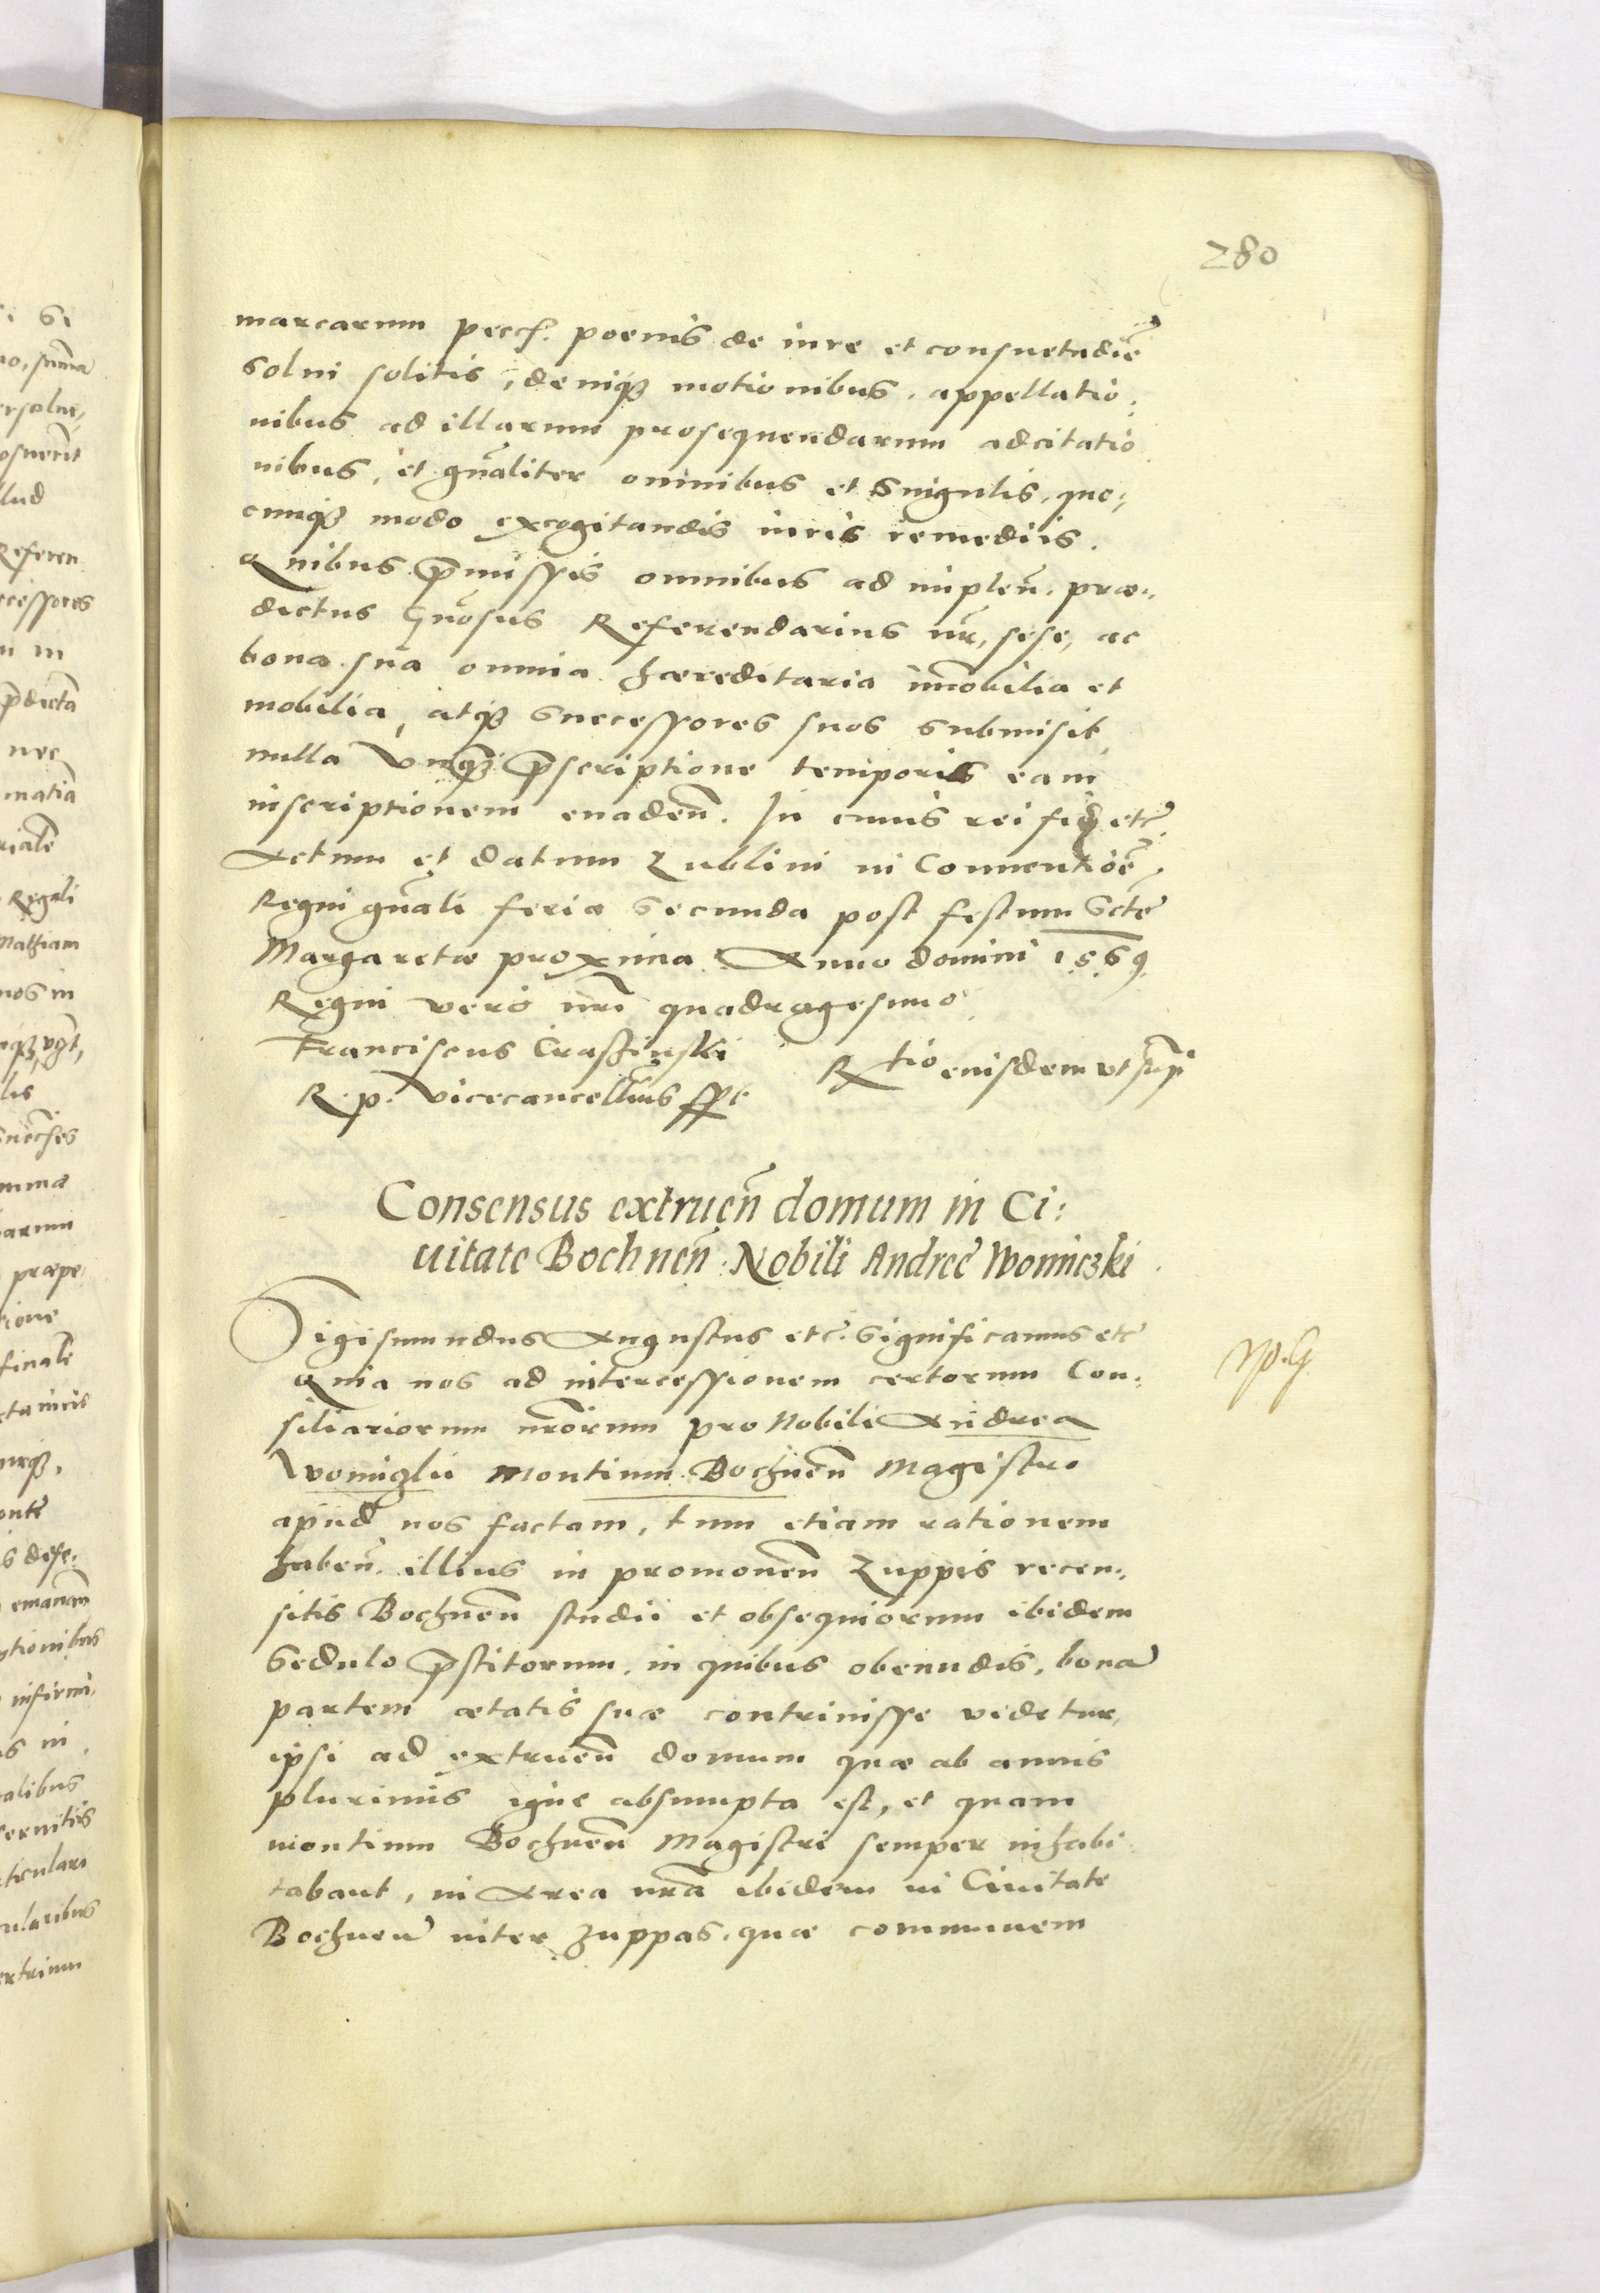 280
marcarum peccũ. poenis de iure et consuetudiẽ
solui solitis, deniqȝ motionibus, appellatio:
nibus ad illarum prosequendarum adcitatio
nibus, et gñaliter omnibus et singulis, quo:
cunqȝ modo excogitandis iuris remediis.
Quibus p̃missis omnibus ad implen̄. præ:
dictus Gñosus Referendarius nr̃, sese, ac
bona sua omnia hæreditaria im̃obilia et
mobilia, atqȝ successores suos submisit,
nulla vnqȝ p̃scriptione temporis eam
inscriptionem euaden̄. In cuius rei fid̃ etc̃
Actum et datum Lublini in Conuentiõe
Regni gñali feria secunda post festum Sctẽ
Margaretæ proxima Anno domini 1569
Regni vero nr̃i quadragesimo
Franciscus Crasinski
R. p. Vicecancellr̃ius sspt
Rtio eiusdem vt supr̃
Consensus extruen̄ domum in Ci:
uitate Bochnen̄. Nobili Andreæ Womiczki
Sigismundus Augustus etc̃. Significamus etc̃
Quia nos ad intercessionem certorum Con:
siliariorum nr̃orum pro Nobili Andrea
Womiczki Montium Bochnen̄ Magistro
apud nos factam, tum etiam rationem
haben̄. illius in promouen̄ Zuppis recen:
sitis Bochnen̄ studii et obsequiorum ibidem
sedulo p̃stitorum, in quibus obeundis, bonã
partem ætatis suæ contriuisse videtur,
ipsi ad extruen̄ domum quæ ab annis
plurimis igne absumpta est, et quam
montium Bochnen̄ Magistri semper inhabi
tabant, in Area nr̃a ibidem in Ciuitate
Bochnen̄ inter Zuppas, quæ communem